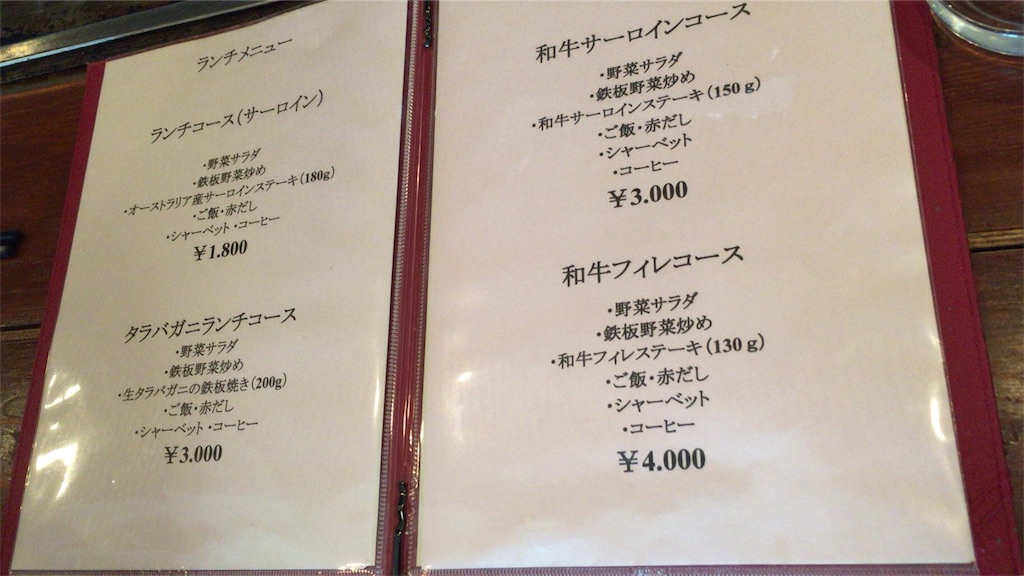 ランチメニュー
ランチコース(サーロイン)
・野菜サラダ
・鉄板野菜炒め
・オーストラリア産サーロインステーキ(180g)
・ご飯・赤だし
・シャーベット・コーヒー
￥1.800
タラバガニランチコース
・野菜サラダ
・鉄板野菜炒め
・生タラバガニの鉄板焼き(200g)
・ご飯・赤だし
・シャーベット・コーヒー
￥3.000
和牛サーロインコース
・野菜サラダ
・鉄板野菜炒め
・和牛サーロインステーキ(150g)
・ご飯・赤だし
・シャーベット
・コーヒー
￥3.000
和牛フィレコース
・野菜サラダ
・鉄板野菜炒め
・和牛フィレステーキ(130g)
・ご飯・赤だし
・シャーベット
・コーヒー
￥4.000